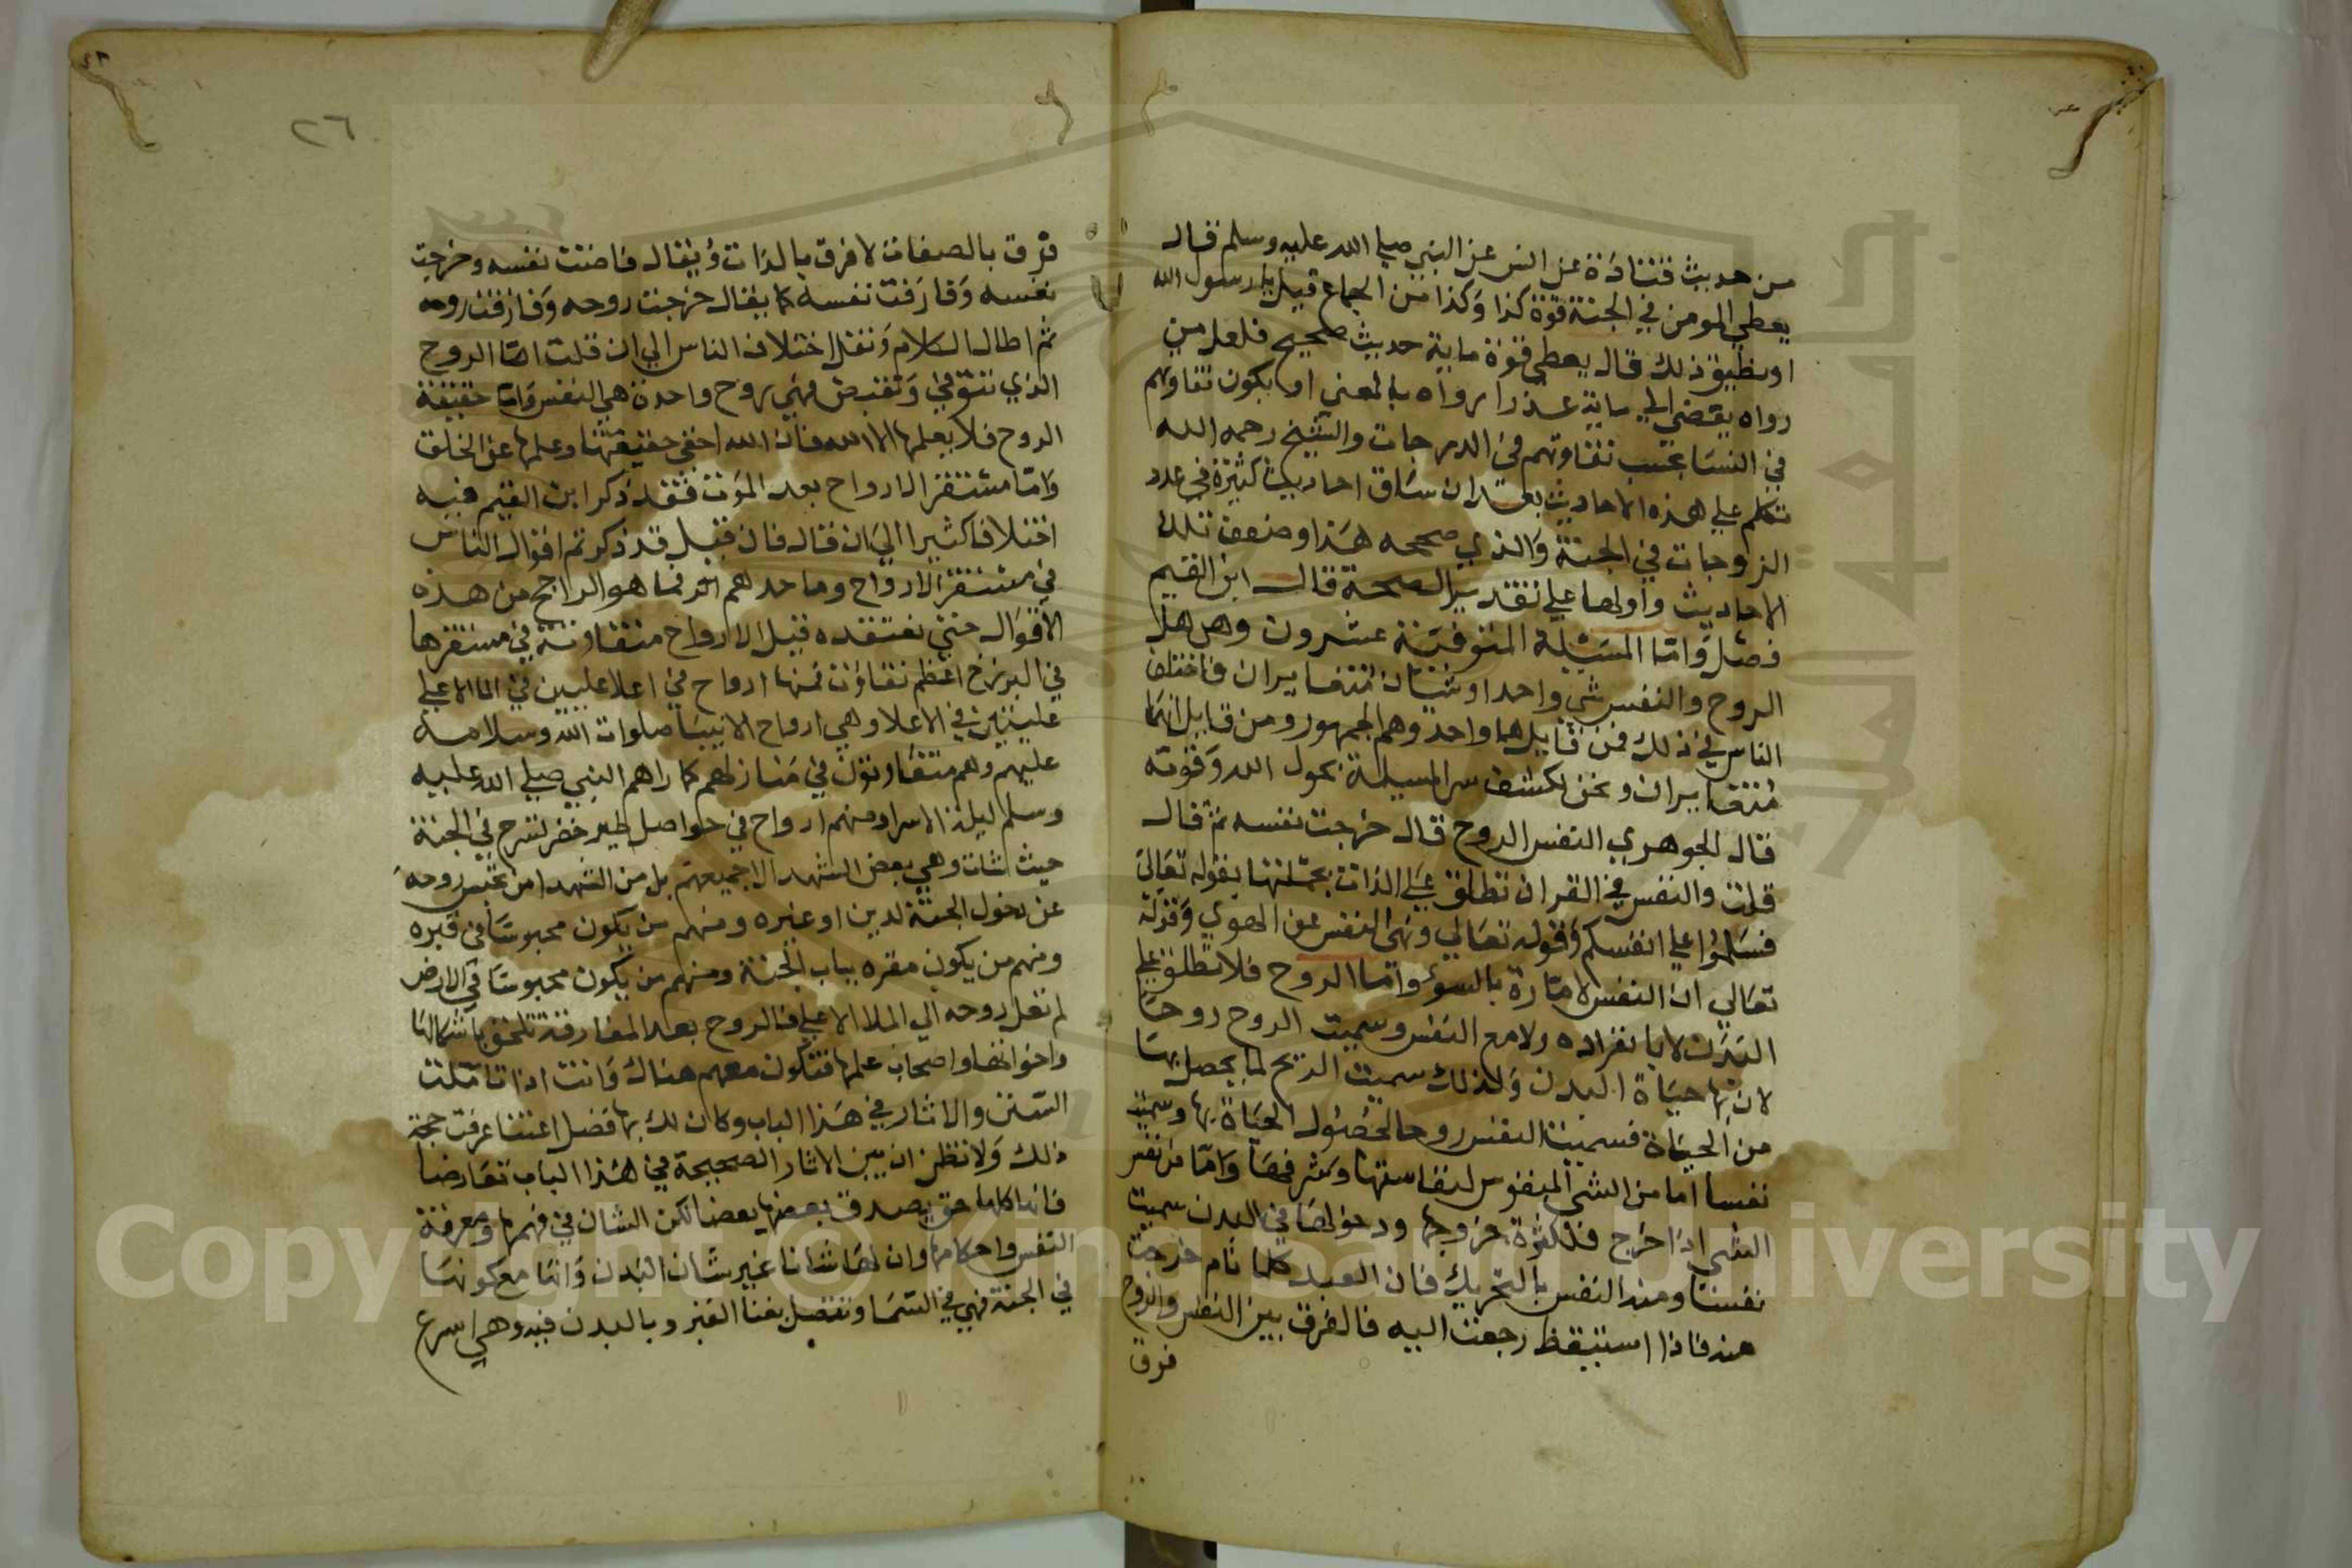 من حديث قتادة عن انس عن النبي صلي الله عليه وسلم قال
يعطي المومن في الجنة قوة كذا وكذا من الجماع قيل يا رسول الله
او يطيق ذلك قال يعطي قوة ماية حديث صحيح فلعل من
رواه يفضي الي ماية عذرا رواه بالمعني او يكون تفاوتهم
في النسا بحسب تفاوتهم في الدرجات والشيخ رحمه الله
تكلم علي هذه الاحاديث بعد ان ساق احاديث كثيرة في عدد
الزوجات في الجنة والذي صححه هذا وضعف تلك
الاحاديث واولها علي تقدير الصحة قال ابن القيم
فصل واما المسئلة المتوفتنة عشرون وهي هل
الروح والنفس شي واحد او شيئان متغايران فاختلف
الناس في ذلك فمن قايل هما واحد وهم الجمهور ومن قايل انهما
متغايران ونحن نكشف سر المسيلة بحول الله وقوته
قال الجوهري النفس الروح قال خرجت نفسه ثم قال
قلت والنفس في القران تطلق علي الذات بجملتها بقوله تعالي
فسلموا علي انفسكم وقوله تعالي ونهي النفس عن الهوي وقوله
تعالي ان النفس لامارة بالسوء واما الروح فلا تطلق علي
البدن لا بانفراده ولا مع النفس وسميت الروح روحا
لان بها حياة البدن وكذلك سميت الريح لما يحصل بها
من الحياة فسميت النفس روحا لحصول الحياة بها وسميت
نفسا اما من الشي المنفوس لنفاستها وشرفها واما من تنفس
الشي اذا خرج فلكثرة خروجها ودخولها في البدن سميت
نفسا ومنه النفس بالتحريك فان العبد كلما نام خرجت
منه فاذا استيقظ رجعت اليه فالفرق بين النفس والروح
فرق
٢٦
فرق بالصفات لا فرق بالذات ويقال فاضت نفسه وخرجت
نفسه وفارقت نفسه كما يقال خرجت روحه وفارقت روحه
ثم اطال الكلام ونقل اختلاف الناس الي ان قلت اما الروح
الذي تتوفي وتقبض فهي روح واحدة هي النفس واما حقيقة
الروح فلا يعلمها الا الله فان الله اخفي حقيقتها وعلمها عن الخلق
واما مستقر الارواح بعد الموت فقد ذكر ابن القيم فيه
اختلافا كثيرا الي ان قال فان قيل قد ذكرتم اقوال الناس
في مستقر الارواح وماخذهم فما هو الراجح من هذه
الاقوال حتي نعتقده قيل الارواح متفاوتة في مستقرها
في البرزخ اعظم تفاوت فمنها ارواح في اعلا عليين في الملا الاعلي
عليين في الاعلا وهي ارواح الانبيا صلوات الله وسلامه
عليهم وهم متفاوتون في منازلهم كما راهم النبي صلي الله عليه
وسلم ليلة الاسرا ومنهم ارواح في حواصل طير خضر تسرح في الجنة
حيث شات وهي بعض الشهدا لا جميعهم بل من الشهدا من تحبس روحه
عن دخول الجنة لدين او غيره ومنهم من يكون محبوسا في قبره
ومنهم من يكون مقره بباب الجنة ومنهم من يكون محبوسا في الارض
لم تعل روحه الي الملا الاعلي فالروح بعد المفارقة تلحق باشكالها
واخوانها واصحاب عملها فتكون معهم هناك وانت اذا تاملت
السنن والاثار في هذا الباب وكان لك بها فضل اعتنا عرفت حجة
ذلك ولا تظن ان بين الاثار الصحيحة في هذا الباب تعارضا
فانها كلها حق يصدق بعضها بعضا لكن الشان في فهمها ومعرفة
النفس واحكامها وان لها شانا غير شان البدن وانها مع كونها
في الجنة فهي في السما وتتصل بفنا القبر وبالبدن فيه وهي اسرع
Copyright © King Saud University